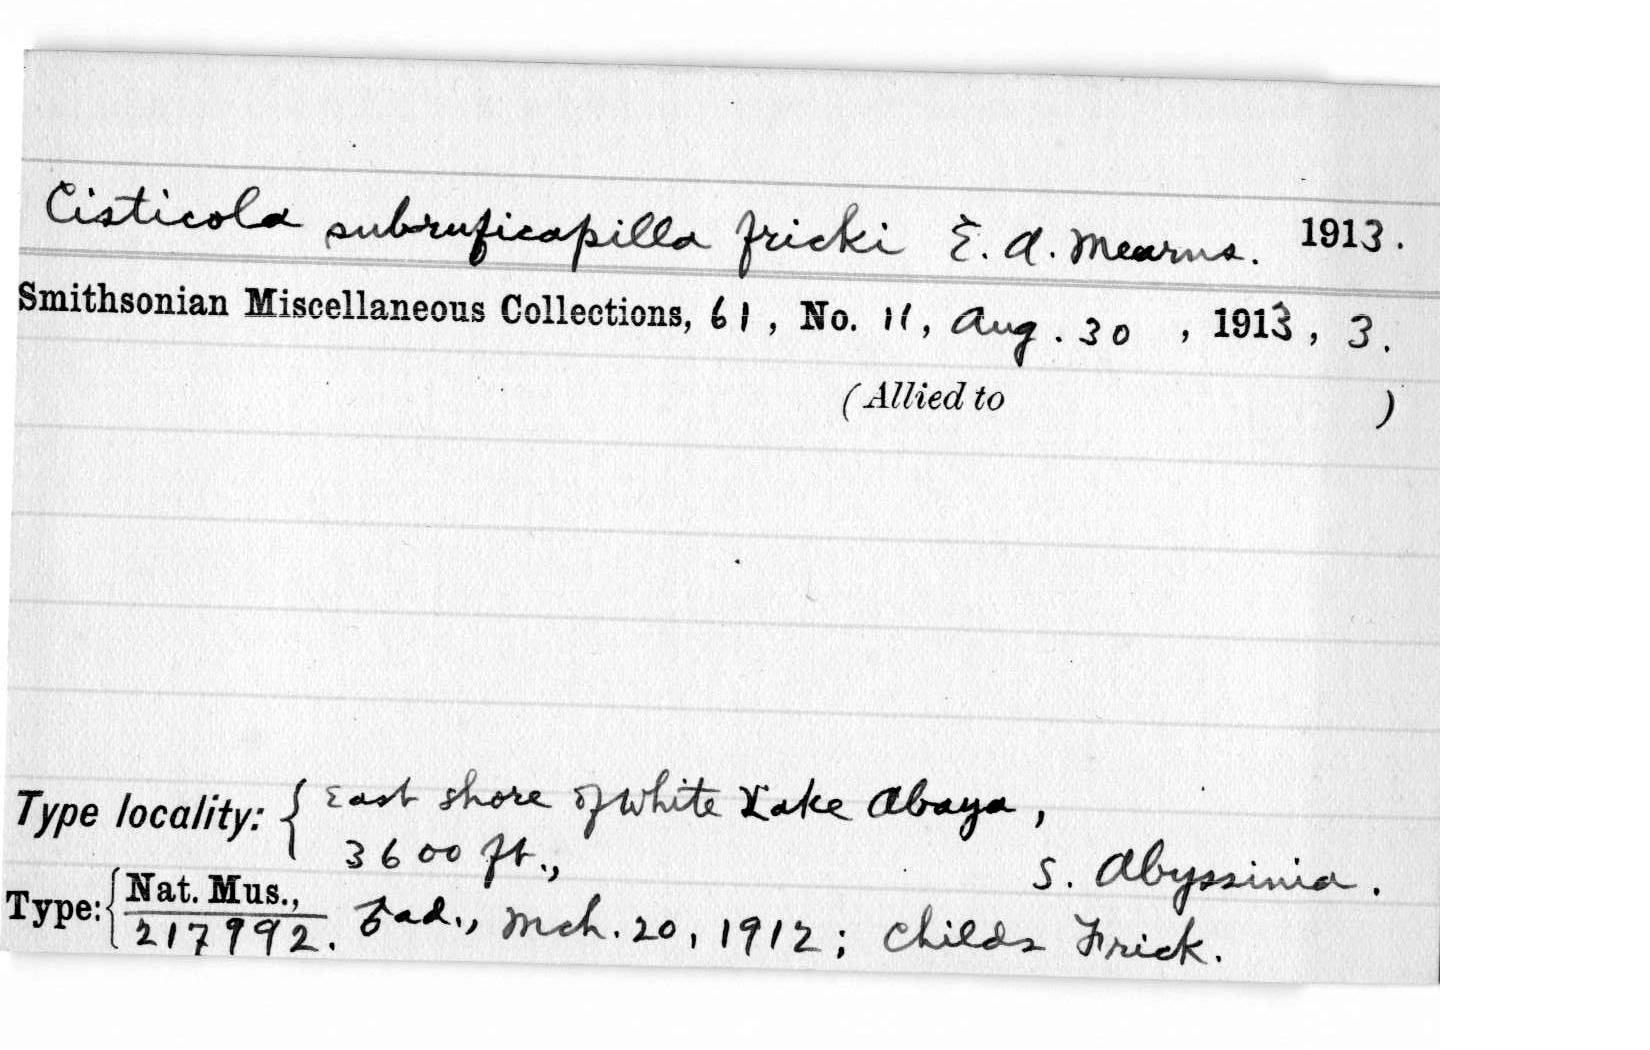 Cisticola subruficapilla fricki E. A. Mearns. 1913.
Smithsonian Miscellaneous Collections, 61, No. 11, Aug. 30, 1913, 3.
(Allied to )
Type locality: { East shore of White Lake Abaya,
3600 ft., S. Abyssinia.
Type: { Nat. Mus.,
217992. ad., Mch. 20, 1912; Childs Frick.